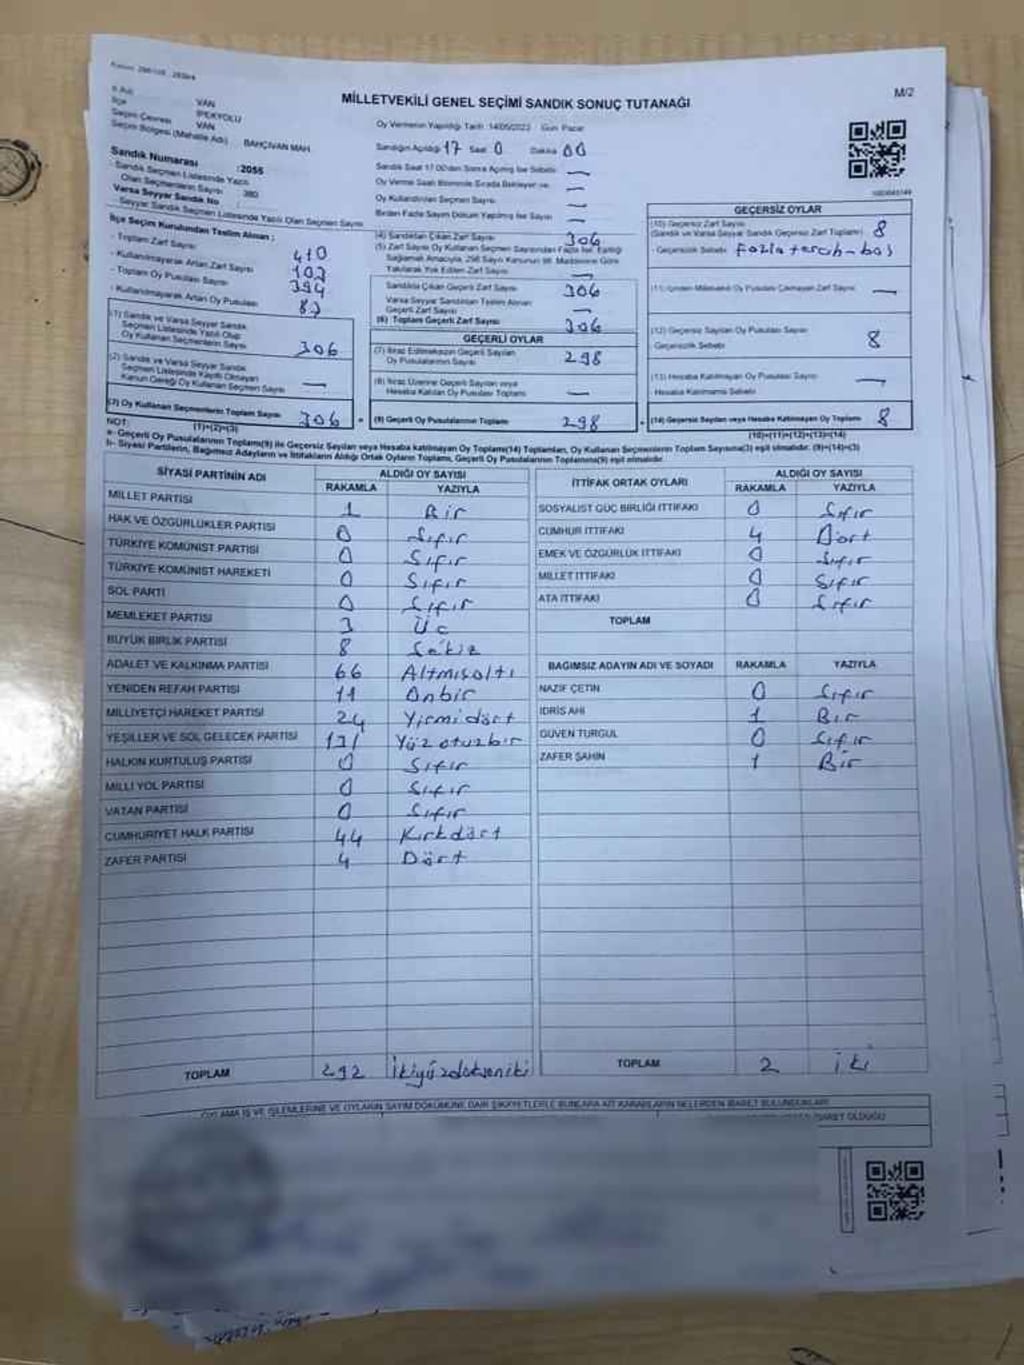 M/2
MİLLETVEKİLİ GENEL SEÇİMİ SANDIK SONUÇ TUTANAĞI
İl Adı VAN
İlçe İPEKYOLU
Seçim Çevresi VAN
Seçim Bölgesi (Mahalle Adı) BAHÇIVAN MAH
Sandık Numarası :2055
Sandık Seçmen Listesinde Yazılı
Olan Seçmenlerin Sayısı : 380
Varsa Seyyar Sandık No
Seyyar Sandık Seçmen Listesinde Yazılı Olan Seçmen Sayısı
Oy Vermenin Yapıldığı Tarih :14/05/2023 Gün Pazar
Sandığın Açıldığı 17 Saat 0 Dakika 00
Sandık Saat 17.00'den Sonra Açılmış İse Sebebi —
Oy Verme Saati Bitiminde Sırada Bekleyen ve —
Oy Kullandırılan Seçmen Sayısı —
Birden Fazla Sayım Döküm Yapılmış İse Sayısı —
İlçe Seçim Kurulundan Teslim Alınan ;
- Toplam Zarf Sayısı 410
- Kullanılmayarak Artan Zarf Sayısı
- Toplam Oy Pusulası Sayısı 394
- Kullanılmayarak Artan Oy Pusulası
(1) Sandık ve Varsa Seyyar Sandık
Seçmen Listesinde Yazılı Olup
Oy Kullanan Seçmenlerin Sayısı 306
(2) Sandık ve Varsa Seyyar Sandık
Seçmen Listesinde Kayıtlı Olmayan
Kanun Gereği Oy Kullanan Seçmen Sayısı —
(3) Oy Kullanan Seçmenlerin Toplam Sayısı 306
(1)+(2)=(3)
(4) Sandıktan Çıkan Zarf Sayısı 306
(5) Zarf Sayısı Oy Kullanan Seçmen Sayısından Fazla İse, Eşitliği
Sağlamak Amacıyla, 298 Sayılı Kanunun 98. Maddesine Göre
Yakılarak Yok Edilen Zarf Sayısı —
Sandıkta Çıkan Geçerli Zarf Sayısı 306
Varsa Seyyar Sandıktan Teslim Alınan
Geçerli Zarf Sayısı —
(6) Toplam Geçerli Zarf Sayısı 306
GEÇERLİ OYLAR
(7) İtiraz Edilmeksizin Geçerli Sayılan
Oy Pusulalarının Sayısı 298
(8) İtiraz Üzerine Geçerli Sayılan veya
Hesaba Katılan Oy Pusulası Toplamı —
(9) Geçerli Oy Pusulalarının Toplamı 298
GEÇERSİZ OYLAR
(10) Geçersiz Zarf Sayısı
(Sandık ve Varsa Seyyar Sandık Geçersiz Zarf Toplamı) 8
- Geçersizlik Sebebi
(11) İçinden Milletvekili Oy Pusulası Çıkmayan Zarf Sayısı —
(12) Geçersiz Sayılan Oy Pusulası Sayısı 8
- Geçersizlik Sebebi
(13) Hesaba Katılmayan Oy Pusulası Sayısı —
- Hesaba Katılmama Sebebi
(14) Geçersiz Sayılan veya Hesaba Katılmayan Oy Toplamı 8
(10)+(11)+(12)+(13)=(14)
NOT:
a- Geçerli Oy Pusulalarının Toplamı(9) ile Geçersiz Sayılan veya Hesaba katılmayan Oy Toplamı(14) Toplamları, Oy Kullanan Seçmenlerin Toplam Sayısına(3) eşit olmalıdır. (9)+(14)=(3)
b- Siyasi Partilerin, Bağımsız Adayların ve İttifakların Aldığı Ortak Oyların Toplamı, Geçerli Oy Pusulalarının Toplamına(9) eşit olmalıdır
SİYASİ PARTİNİN ADI ALDIĞI OY SAYISI
RAKAMLA YAZIYLA
MİLLET PARTİSİ 1 Bir
HAK VE ÖZGÜRLÜKLER PARTİSİ 0 Sıfır
TÜRKİYE KOMÜNİST PARTİSİ 0 Sıfır
TÜRKİYE KOMÜNİST HAREKETİ 0 Sıfır
SOL PARTİ 0 Sıfır
MEMLEKET PARTİSİ 3 Üç
BÜYÜK BİRLİK PARTİSİ 8 Sekiz
ADALET VE KALKINMA PARTİSİ 66 Altmışaltı
YENİDEN REFAH PARTİSİ 11 Onbir
MİLLİYETÇİ HAREKET PARTİSİ 24 Yirmidört
YEŞİLLER VE SOL GELECEK PARTİSİ 131 Yüzotuzbir
HALKIN KURTULUŞ PARTİSİ 0 Sıfır
MİLLİ YOL PARTİSİ 0 Sıfır
VATAN PARTİSİ 0 Sıfır
CUMHURİYET HALK PARTİSİ 44 Kırkdört
ZAFER PARTİSİ 4 Dört
TOPLAM 292 İkiyüzdoksaniki
İTTİFAK ORTAK OYLARI ALDIĞI OY SAYISI
RAKAMLA YAZIYLA
SOSYALİST GÜÇ BİRLİĞİ İTTİFAKI 0 Sıfır
CUMHUR İTTİFAKI 4 Dört
EMEK VE ÖZGÜRLÜK İTTİFAKI 0 Sıfır
MİLLET İTTİFAKI 0 Sıfır
ATA İTTİFAKI 0 Sıfır
TOPLAM
BAĞIMSIZ ADAYIN ADI VE SOYADI RAKAMLA YAZIYLA
NAZİF ÇETİN 0 Sıfır
İDRİS AHİ 1 Bir
GÜVEN TURGUL 0 Sıfır
ZAFER ŞAHİN 1 Bir
TOPLAM 2 iki
OYLAMA İŞ VE İŞLEMLERİNE VE OYLARIN SAYIM DÖKÜMÜNE DAİR ŞİKAYETLERLE BUNLARA AİT KARARLARIN NELERDEN İBARET BULUNDUKLARI